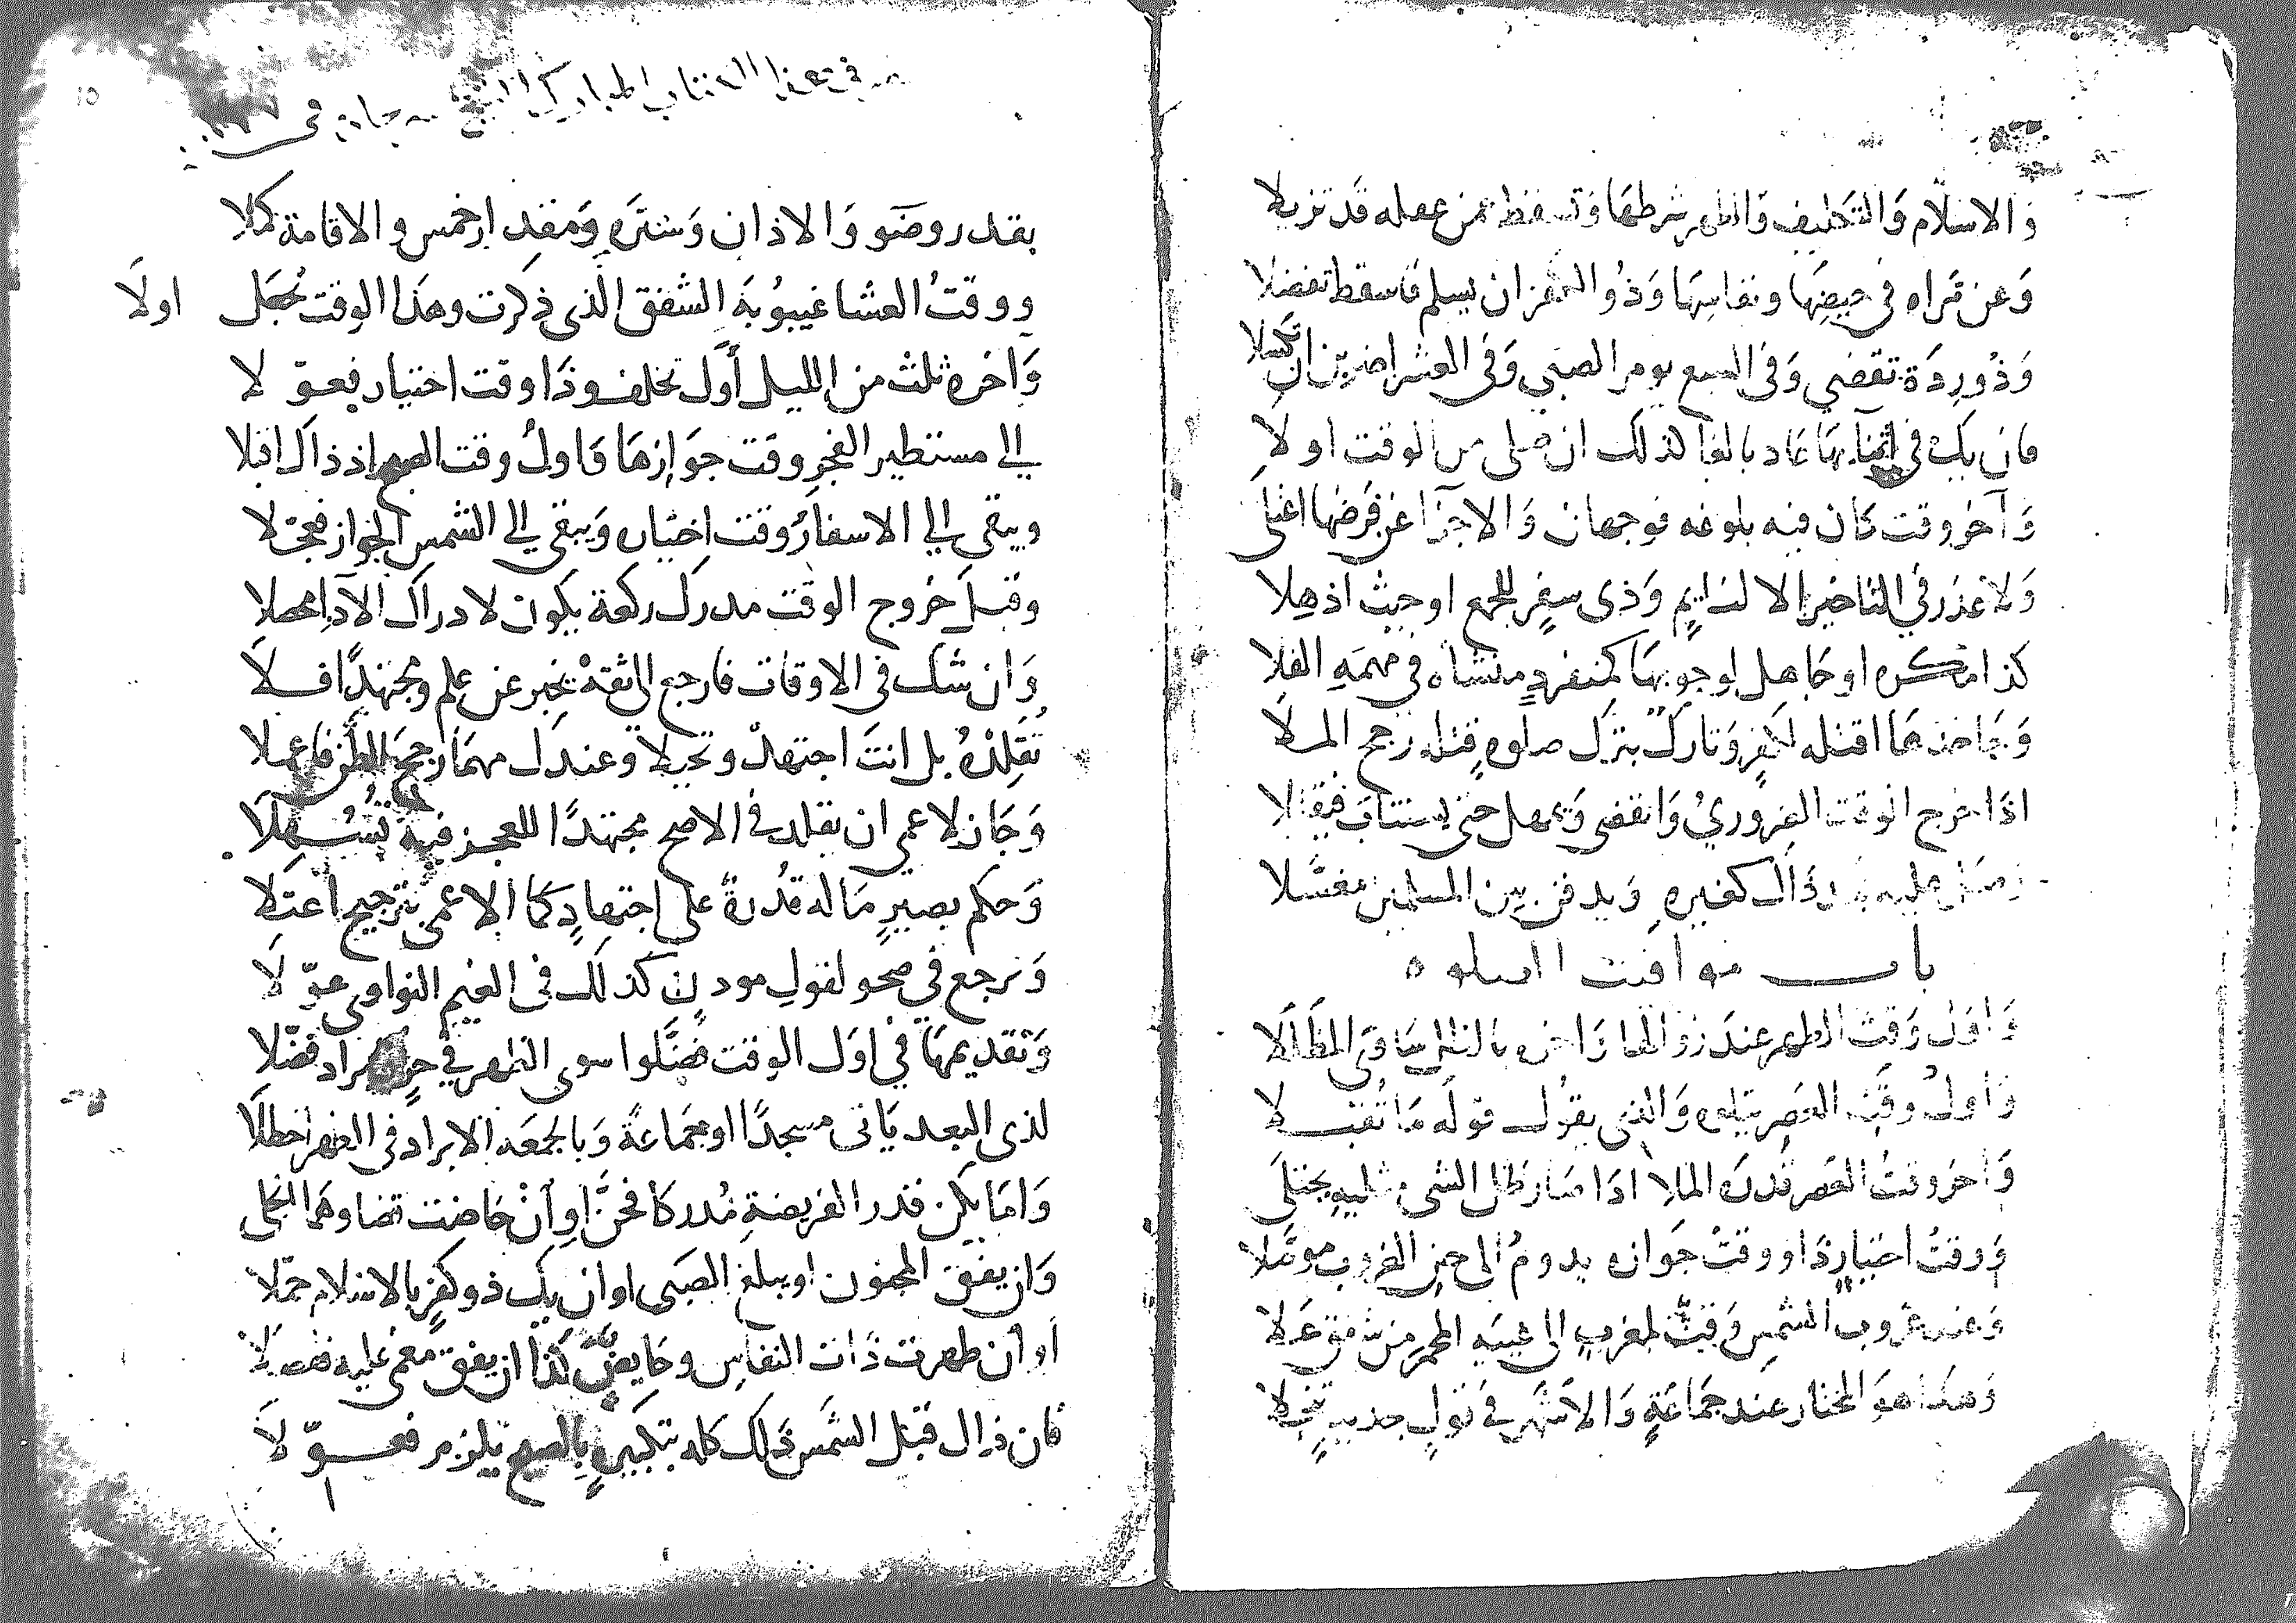 والاسلام والتكليف والطهر شرطها وتسقط عمن عقله قد تزيلا
وعن مراه في حيضها ونفاسها وذو الكفر ان يسلم فاسقط تفضلا
وذو ردة تقضي وفي السبع يومر الصبي وفي العشر اضربن ان تكسلا
فان يك في اثنآيها عاد بالغا كذلك ان صلى من الوقت اولا
وآخر وقت كان فيه بلوغه فوجهان والاجزا عن فرضها اعتلى
ولا عذر في التاخير الا لنايم وذى سفر للجمع او حيث اذهلا
كذا مكره او جاهل لوجوبها كمنفرد منشاه في مهمه الفلا
وجاحدها اقتله لكفر وتارك بترك صلوة قتله رجح الملا
اذا خرج الوقت الضروري وانقضى ويمهل حتى يستتاب فيقتلا
وصل عليه ذاك كغيره ويدفن بين المسلمين مغسلا
باب مواقيت الصلوه
واول وقت الظهر عند زوالها واخره بالظل ساوى المظللا
واول وقت العصر يتلوه والذي يقول قوله ما تقبلا
واخر وقت العصر قدره الملا اذا صار ظل الشي مثليه يجتلى
ووقت اختيار ذا ووقت جوازه يدوم الى حين الغروب موصلا
وعند غروب الشمس وقت لمغرب الى غيبة المحمر من شفق علا
وهذا هو المختار عند جماعة والاشهر في قول جديد تنخلا
في هذا الكتاب المبارك
بقدر وضو والاذان وستره ومقدار خمس والاقامة كملا
ووقت العشا غيبوبة الشفق الذي ذكرت وهذا الوقت نجعل اولا
وآخره ثلث من الليل أول تخلف وذا وقت اختيار فعولا
الي مستطير الفجر وقت جوازها واول وقت الصبح اذ ذاك اقبلا
ويبقى الي الاسفار وقت اختياره ويبقى الي الشمس الجواز فحجلا
وقبل خروج الوقت مدرك ركعة يكون لادراك الآدا محصلا
وان شك في الاوقات فارجع الى ثقة يخبر عن علم ومجتهدا فلا
تقلده بل انت اجتهد وتحيلا وعندك مهما رجح الظن فاعملا
وجاز لاعمى ان يقلد في الاصح مجتهدا للعجز فيه تسهلا
وحكم بصير ماله قدرة على اجتهاد كما الاعمى بترجيح اعتلا
ونرجع في صحو لقول موذن كذلك في الغيم النواوى عولا
وتقديمها في اول الوقت فضلوا سوى الظهر في حر فضلا
لذى البعد ياتي مسجدا او جماعة وبالجمعه الابراد في الظهر اخطلا
واما يكن قدر الفريضة مدركا فجن او آن حاضت قضاوهما انجلى
وان يفق المجنون او يبلغ الصبى او ان يك ذو كفر بالاسلام حملا
أو أن طهرت ذات النفاس وحايض كذا ان يفق مغمى عليه فصلا
فان زال قبل الشمس ذلك كله بتكبيرة بالصبح يلزم فعولا